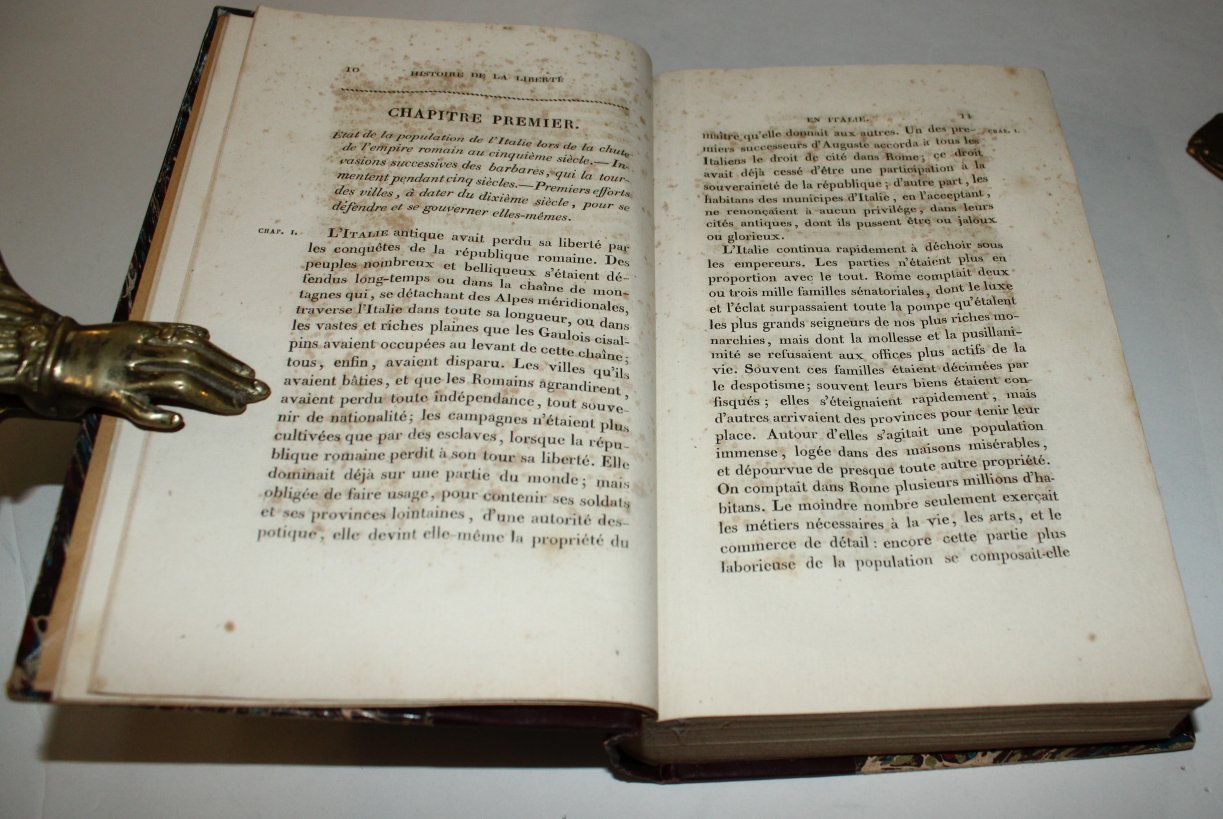 10 HISTOIRE DE LA LIBERTÉ
CHAPITRE PREMIER.
État de la population de l'Italie lors de la chute
de l'empire romain au cinquième siècle.—In-
vasions successives des barbares, qui la tour-
mentent pendant cinq siècles.—Premiers efforts
des villes, à dater du dixième siècle, pour se
défendre et se gouverner elles-mêmes.
CHAP. I. L'ITALIE antique avait perdu sa liberté par
les conquêtes de la république romaine. Des
peuples nombreux et belliqueux s'étaient dé-
fendus long-temps ou dans la chaîne de mon-
tagnes qui, se détachant des Alpes méridionales,
traverse l'Italie dans toute sa longueur, ou dans
les vastes et riches plaines que les Gaulois cisal-
pins avaient occupées au levant de cette chaîne;
tous, enfin, avaient disparu. Les villes qu'ils
avaient bâties, et que les Romains agrandirent,
avaient perdu toute indépendance, tout souve-
nir de nationalité; les campagnes n'étaient plus
cultivées que par des esclaves, lorsque la répu-
blique romaine perdit à son tour sa liberté. Elle
dominait déjà sur une partie du monde; mais
obligée de faire usage, pour contenir ses soldats
et ses provinces lointaines, d'une autorité des-
potique, elle devint elle-même la propriété du
EN ITALIE. 11
maître qu'elle donnait aux autres. Un des pre- CHAP. I.
miers successeurs d'Auguste accorda à tous les
Italiens le droit de cité dans Rome; ce droit
avait déjà cessé d'être une participation à la
souveraineté de la république; d'autre part, les
habitans des municipes d'Italie, en l'acceptant,
ne renonçaient à aucun privilége, dans leurs
cités antiques, dont ils pussent être ou jaloux
ou glorieux.
L'Italie continua rapidement à déchoir sous
les empereurs. Les parties n'étaient plus en
proportion avec le tout. Rome comptait deux
ou trois mille familles sénatoriales, dont le luxe
et l'éclat surpassaient toute la pompe qu'étalent
les plus grands seigneurs de nos plus riches mo-
narchies, mais dont la mollesse et la pusillani-
mité se refusaient aux offices plus actifs de la
vie. Souvent ces familles étaient décimées par
le despotisme; souvent leurs biens étaient con-
fisqués; elles s'éteignaient rapidement, mais
d'autres arrivaient des provinces pour tenir leur
place. Autour d'elles s'agitait une population
immense, logée dans des maisons misérables,
et dépourvue de presque toute autre propriété.
On comptait dans Rome plusieurs millions d'ha-
bitans. Le moindre nombre seulement exerçait
les métiers nécessaires à la vie, les arts, et le
commerce de détail: encore cette partie plus
laborieuse de la population se composait-elle